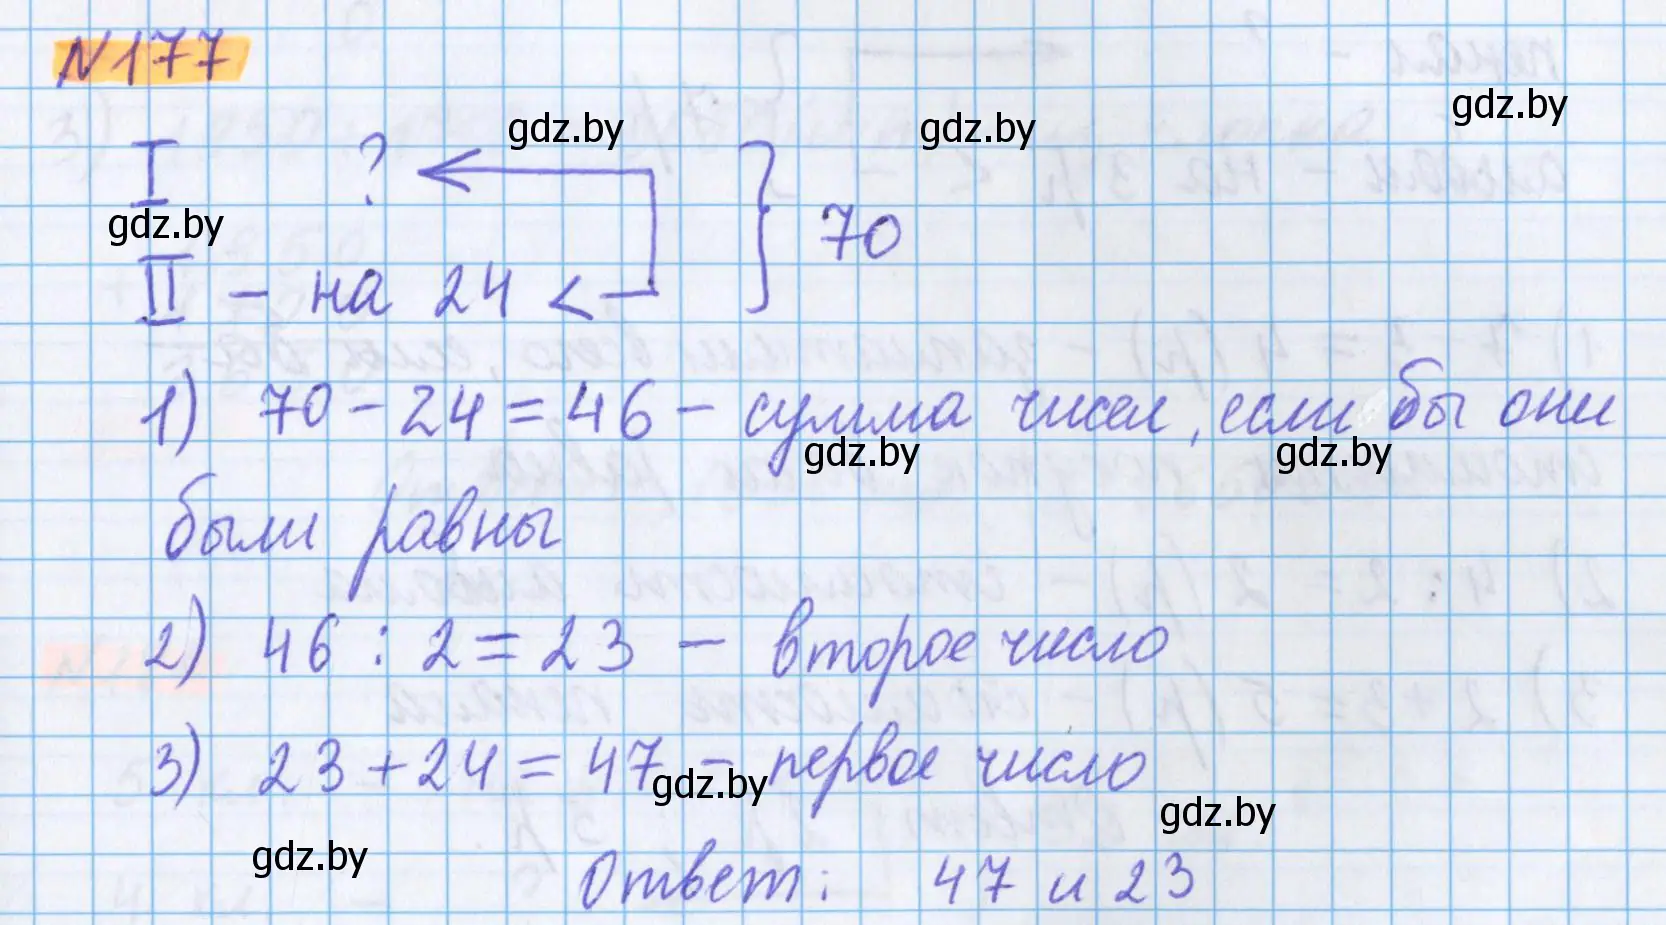 N177
I ? } 70
II - на 24 <
1) 70 - 24 = 46 - сумма чисел, если бы они
были равны
2) 46 : 2 = 23 - второе число
3) 23 + 24 = 47 - первое число
Ответ: 47 и 23
gdz.by
gdz.by
gdz.by
gdz.by
gdz.by
gdz.by
gdz.by
gdz.by
gdz.by